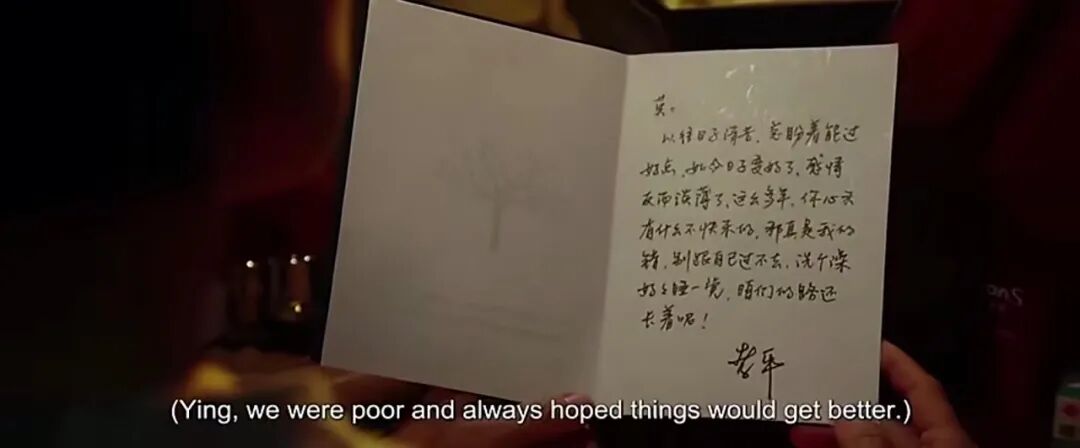 英。
以往日子清苦，总盼着能过
好点，如今日子变好了，感情
反而淡薄了，这么多年，你心里
有什么不快乐的，那真是我的
错，别跟自己过不去，洗个澡
好好睡一觉，咱们的路还
长着呢！
(Ying, we were poor and always hoped things would get better.)